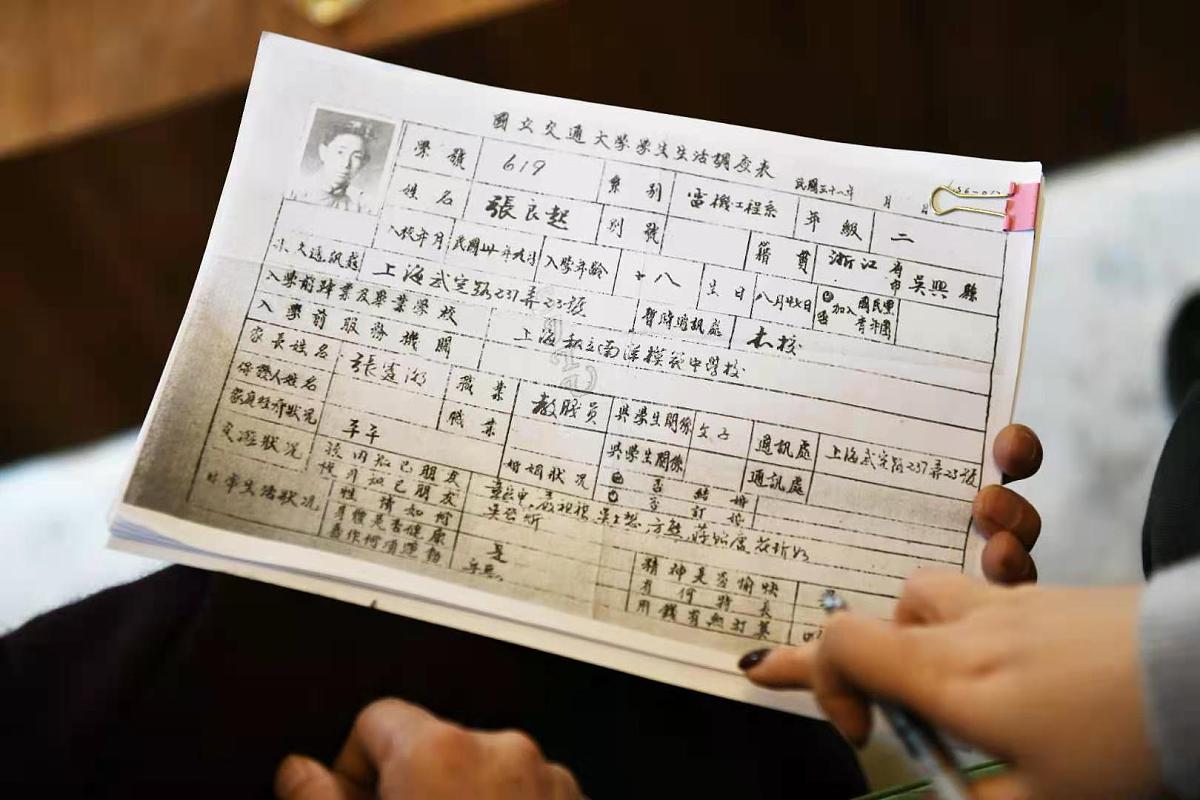 國立交通大學學生生活調查表
民國三十八年 月 日
學號 619 系別 電機工程系 年級 二
姓名 張良起 別號 籍貫 浙江省市吳興縣
入校年月 民國卅年九月 入學年齡 十八 生日 八月廿七日 加入國民黨青年團 否
永久通訊處 上海武定路237弄23號 暫時通訊處 本校
入學前肄業及畢業學校 上海私立南洋模範中學校
入學前服務機關
家長姓名 張憲 職業 教職員 與學生關係 父子 通訊處 上海武定路237弄23號
保證人姓名 職業 與學生關係 通訊處
家庭經濟狀況 平平 婚姻狀況 否 結婚
否 訂婚
交遊狀況 校內知已朋友
校外知已朋友
日常生活狀況 性情如何
身體是否健康 是 精神是否愉快
喜作何項運動 有何特長
用錢有無計算